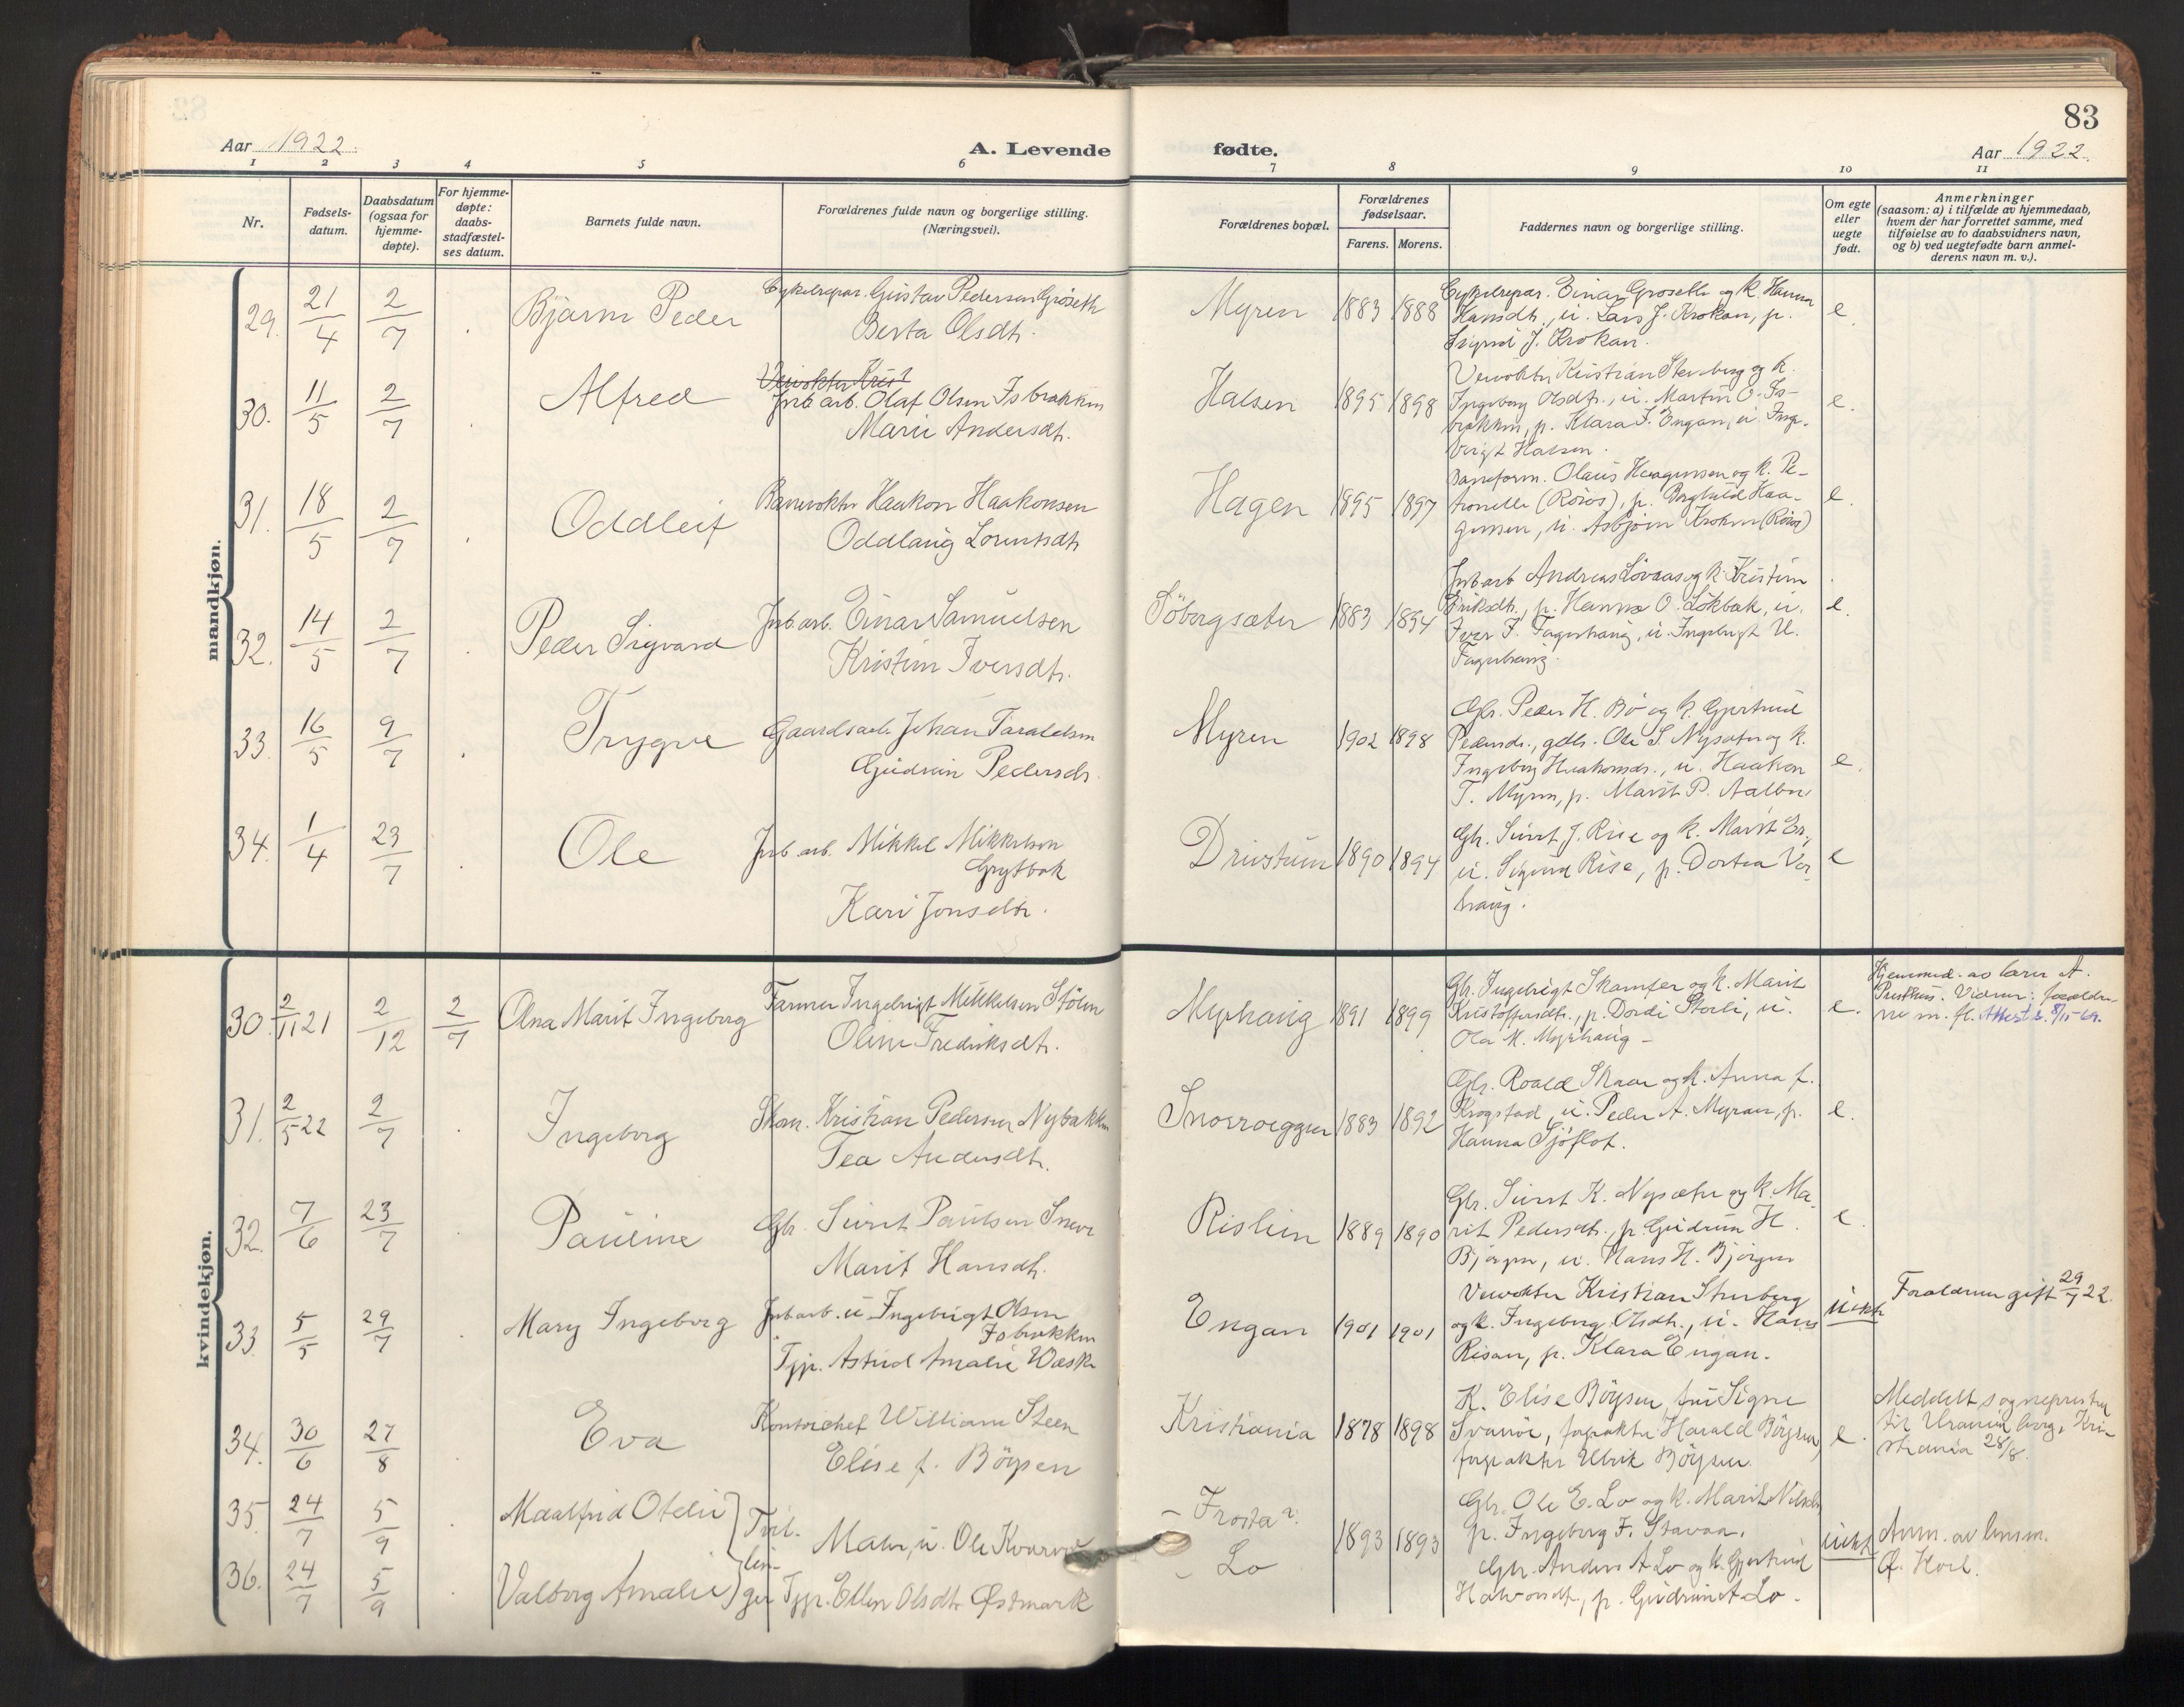 83
Aar 1922.
A. Levende fødte.
Aar 1922.
1 2 3 4 5 6 7 8 9 10 11
Nr.
Fødsels-
datum.
Daabsdatum
(ogsaa for
hjemme-
døpte).
For hjemme-
døpte:
daabs-
stadfæstel-
ses datum.
Barnets fulde navn.
Forældrenes fulde navn og borgerlige stilling.
(Næringsvei).
Forældrenes bopæl.
Forældrenes
fødselsaar.
Farens. Morens.
Faddernes navn og borgerlige stilling.
Om egte
eller
uegte
født.
Anmerkninger
(saasom: a) i tilfælde av hjemmedaab,
hvem der har forrettet samme, med
tilføielse av to daabsvidners navn,
og b) ved uegtefødte barn anmel-
derens navn m. v.).
mandkjøn.
29. 21/4 2/7 Bjarne Peder
Cykelrepar. Gustav Pedersen Gröseth
Berta Olsdtr.
Myren 1883 1888
Cykelrepar. Einar Groseth og k. Hanna
Hansdtr., u. Lars J. Krokan, p.
Sigrid J. Krokan.
e.
30. 11/5 2/7 Alfred
Jnb. arb. Olaf Olsen Isbrekken
Marie Andersdtr.
Halsen 1895 1898
Veivokter Kristian Stenberg og k.
Ingeborg Olsdtr., u. Martin O. Is-
brekken, p. Klara J. Engan, u. Inge-
brigt Halsen.
e.
31. 18/5 2/7 Oddleif
Banevokter Haakon Haakonsen
Oddlaug Lorentsdtr.
Hagen 1895 1897
Baneform. Olaus Haagensen og k. Pe-
tronelle (Röros), p. Borghild Haa-
gensen, u. Asbjörn Kroken (Röros)
e.
32. 14/5 2/7 Peder Sigvard
Jnb. arb. Einar Samuelsen
Kristine Iversdtr.
Söborgsæter 1883 1894
Jnb arb Andreas Lövaas og k. Kristine
Eriksdtr., p. Hanna O. Lökbak, u.
Iver I. Fagerhaug, u. Ingebrigt U.
Fagerhaug.
e.
33. 16/5 9/7 Trygve
Gaardsarb. Johan Taraldsen
Gudrun Pedersdtr.
Myren 1902 1898
Gbr. Peder H. Bö og k. Gjertrud
Pedersdr., gdbr. Ole S. Nysæter og k.
Ingeborg Haakonsdr., u. Haakon
T. Myren, p. Marit P. Aalbu
e.
34. 1/4 23/7 Ole
Jnb. arb. Mikkel Mikkelsen
Grytbak
Kari Jonsdtr.
Drivstuen 1890 1894
Gbr. Sivert J. Rise og k. Marit Er.,
u. Sigurd Rise, p. Dortea Vor-
haug.
e
kvindekjøn.
30. 2/11 21 2/12 2/7 Olna Marit Ingeborg
Farmer Ingebrigt Mikkelsen Stölen
Oline Fredriksdtr.
Myrhaug 1891 1899
Gbr. Ingebrigt Skamfer og k. Marit
Kristoffersdtr., p. Dordi Storli, u.
Ola M. Myrhaug –
e.
Hjemmed. av lærer A.
Presthus. Vidner: forældre-
ne m. fl. Attest s. 8/11-69.
31. 2/5 22 2/7 Ingeborg
Skom. Kristian Pedersen Nybakken
Tea Andersdtr.
Snoeroeggen 1883 1892
Gbr. Roald Skaar og k. Anna f.
Krogstad, u. Peder A. Myran, p.
Hanna Sjöflot.
e.
32. 7/6 23/7 Pauline
Gbr. Sivert Paulsen Snever
Marit Hansdtr.
Rislien 1889 1890
Gbr. Sivert K. Nysæter og k. Ma-
rit Pedersdtr., p. Gudrun H.
Bjørgen, u. Hans H. Bjørgen
e.
33. 5/5 29/7 Mary Ingeborg
Jnb arb. u. Ingebrigt Olsen
Isbrekken
Tjp. Astrid Amalie Wæsk
Engan 1901 1901
Veivokter Kristian Stenberg
og k. Ingeborg Olsdtr., u. Hans
Risan, p. Klara Engan.
uekte
Forældrene gift 29/7 22.
34. 30/6 27/8 Eva
Kontorchef William Steen
Elise f. Böysen
Kristiania 1878 1898
K. Elise Böysen, fru Signe
Svanöe, forpakter Harald Böysen,
forpakter Ulrik Böysen.
e.
Meddelt sognepresten
til Uranienborg, Kri-
stiania 28/8.
35. 24/7 5/9 Maalfrid Otelie
36. 24/7 5/9 Valborg Amalie
Tvil-
lin-
ger
Maler, u. Ole
Tjp. Ellen Olsdtr Østmark
– Frosta?
– Lo
1893 1893
Gbr. Ole E. Lo og k. Marit Nilsdtr,
p. Ingeborg F. Stavaa.
Gbr. Anders A Lo og k. Gjertrud
Halvorsdt., p. Gudrun A Lo.
uekt
Anm. av lensm.
O. Hoel.